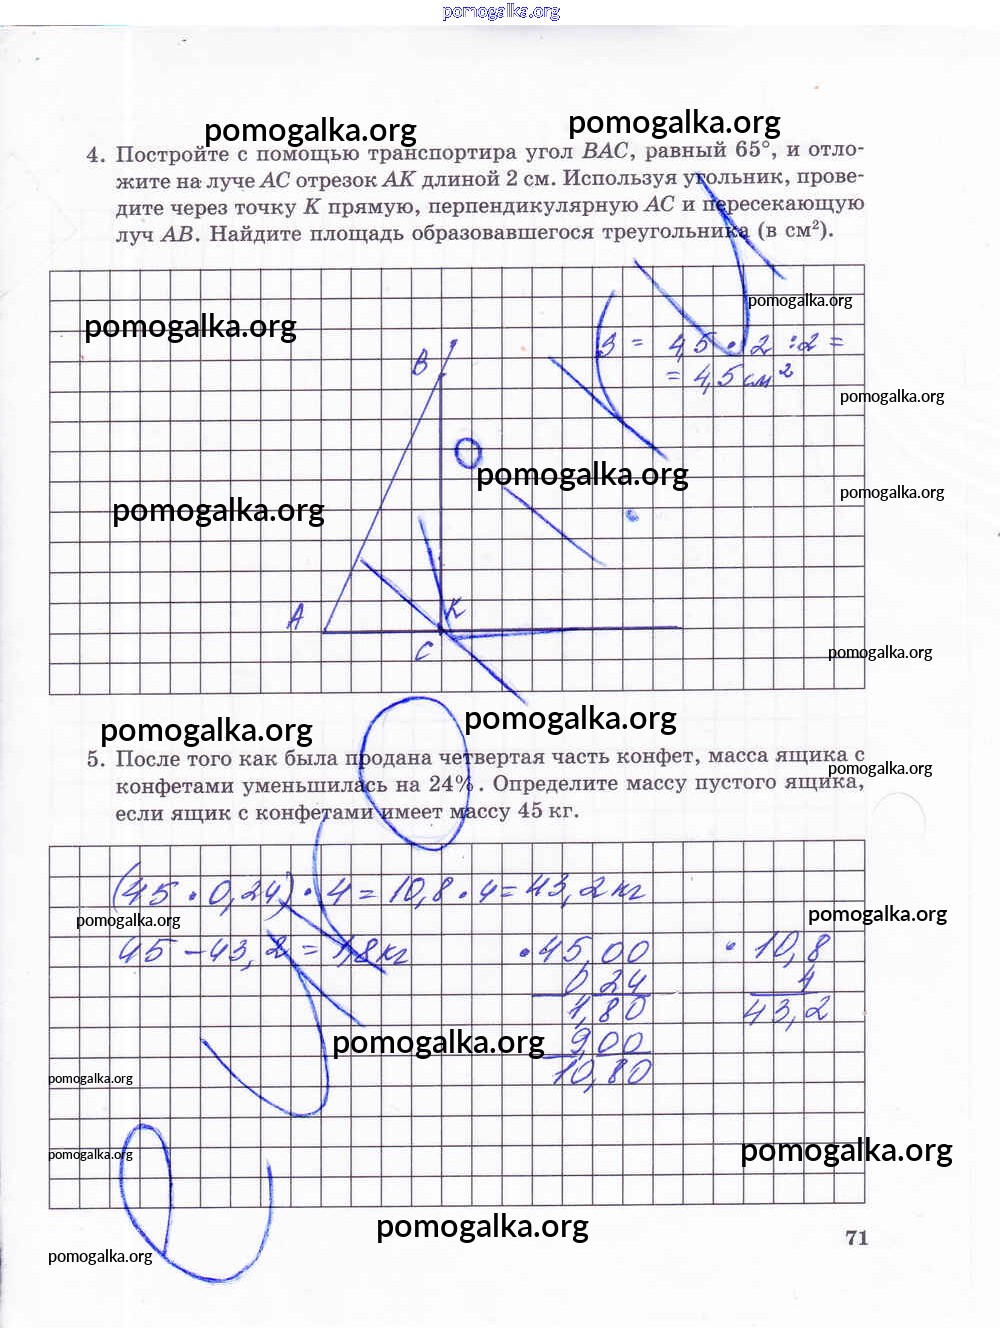 pomogalka.org
pomogalka.org pomogalka.org
4. Постройте с помощью транспортира угол BAC, равный 65°, и отло-
жите на луче AC отрезок AK длиной 2 см. Используя угольник, прове-
дите через точку K прямую, перпендикулярную AC и пересекающую
луч AB. Найдите площадь образовавшегося треугольника (в см²).
pomogalka.org
pomogalka.org
B
S = 4,5 · 2 : 2 =
= 4,5 см²
pomogalka.org
pomogalka.org
pomogalka.org
pomogalka.org
A
K
C
pomogalka.org
pomogalka.org
pomogalka.org
5. После того как была продана четвертая часть конфет, масса ящика с
pomogalka.org
конфетами уменьшилась на 24%. Определите массу пустого ящика,
если ящик с конфетами имеет массу 45 кг.
(45 · 0,24) · 4 = 10,8 · 4 = 43,2 кг
pomogalka.org
pomogalka.org
45 – 43,2 = 1,8 кг
· 45,00
0 24
1,80
9,00
10,80
· 10,8
4
43,2
pomogalka.org
pomogalka.org
pomogalka.org
pomogalka.org
pomogalka.org
71
pomogalka.org